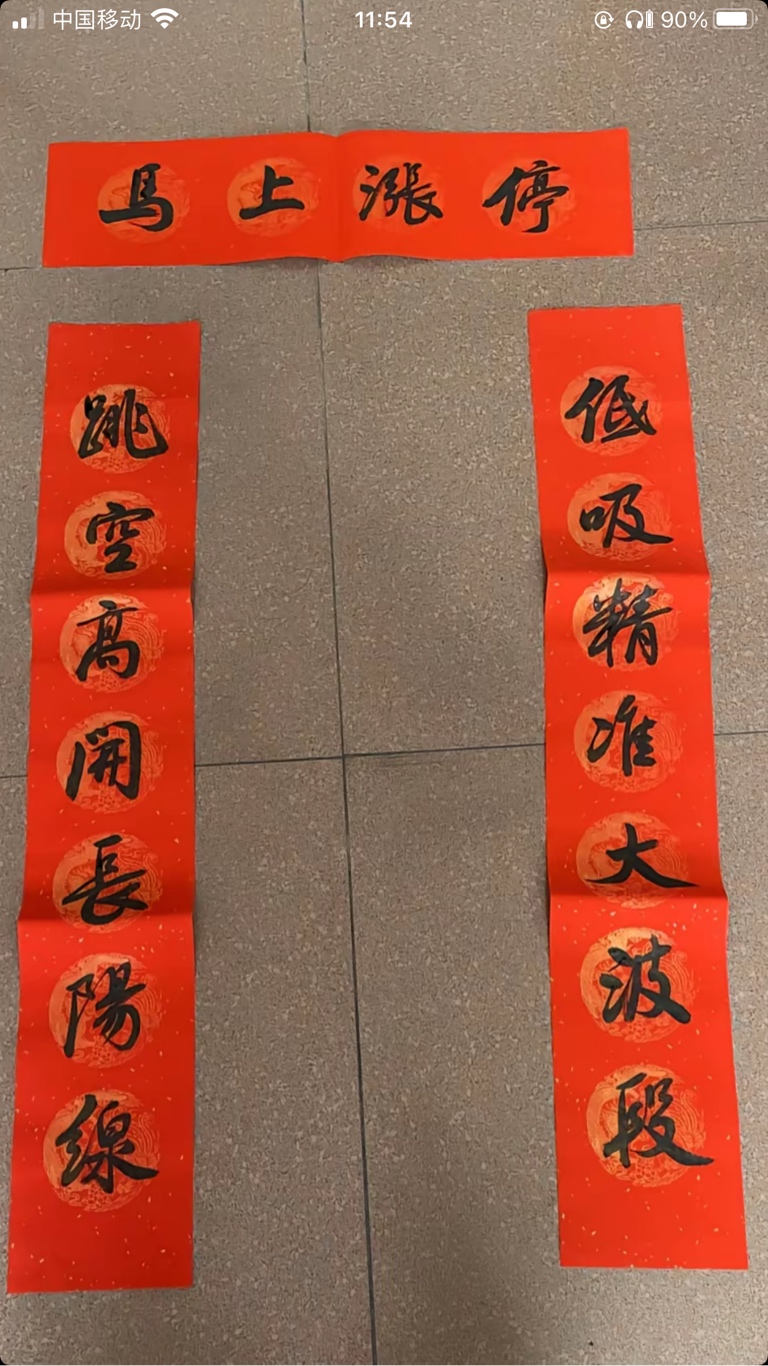 中国移动 11:54 90%
馬上漲停
低吸精准大波段
跳空高開長陽線